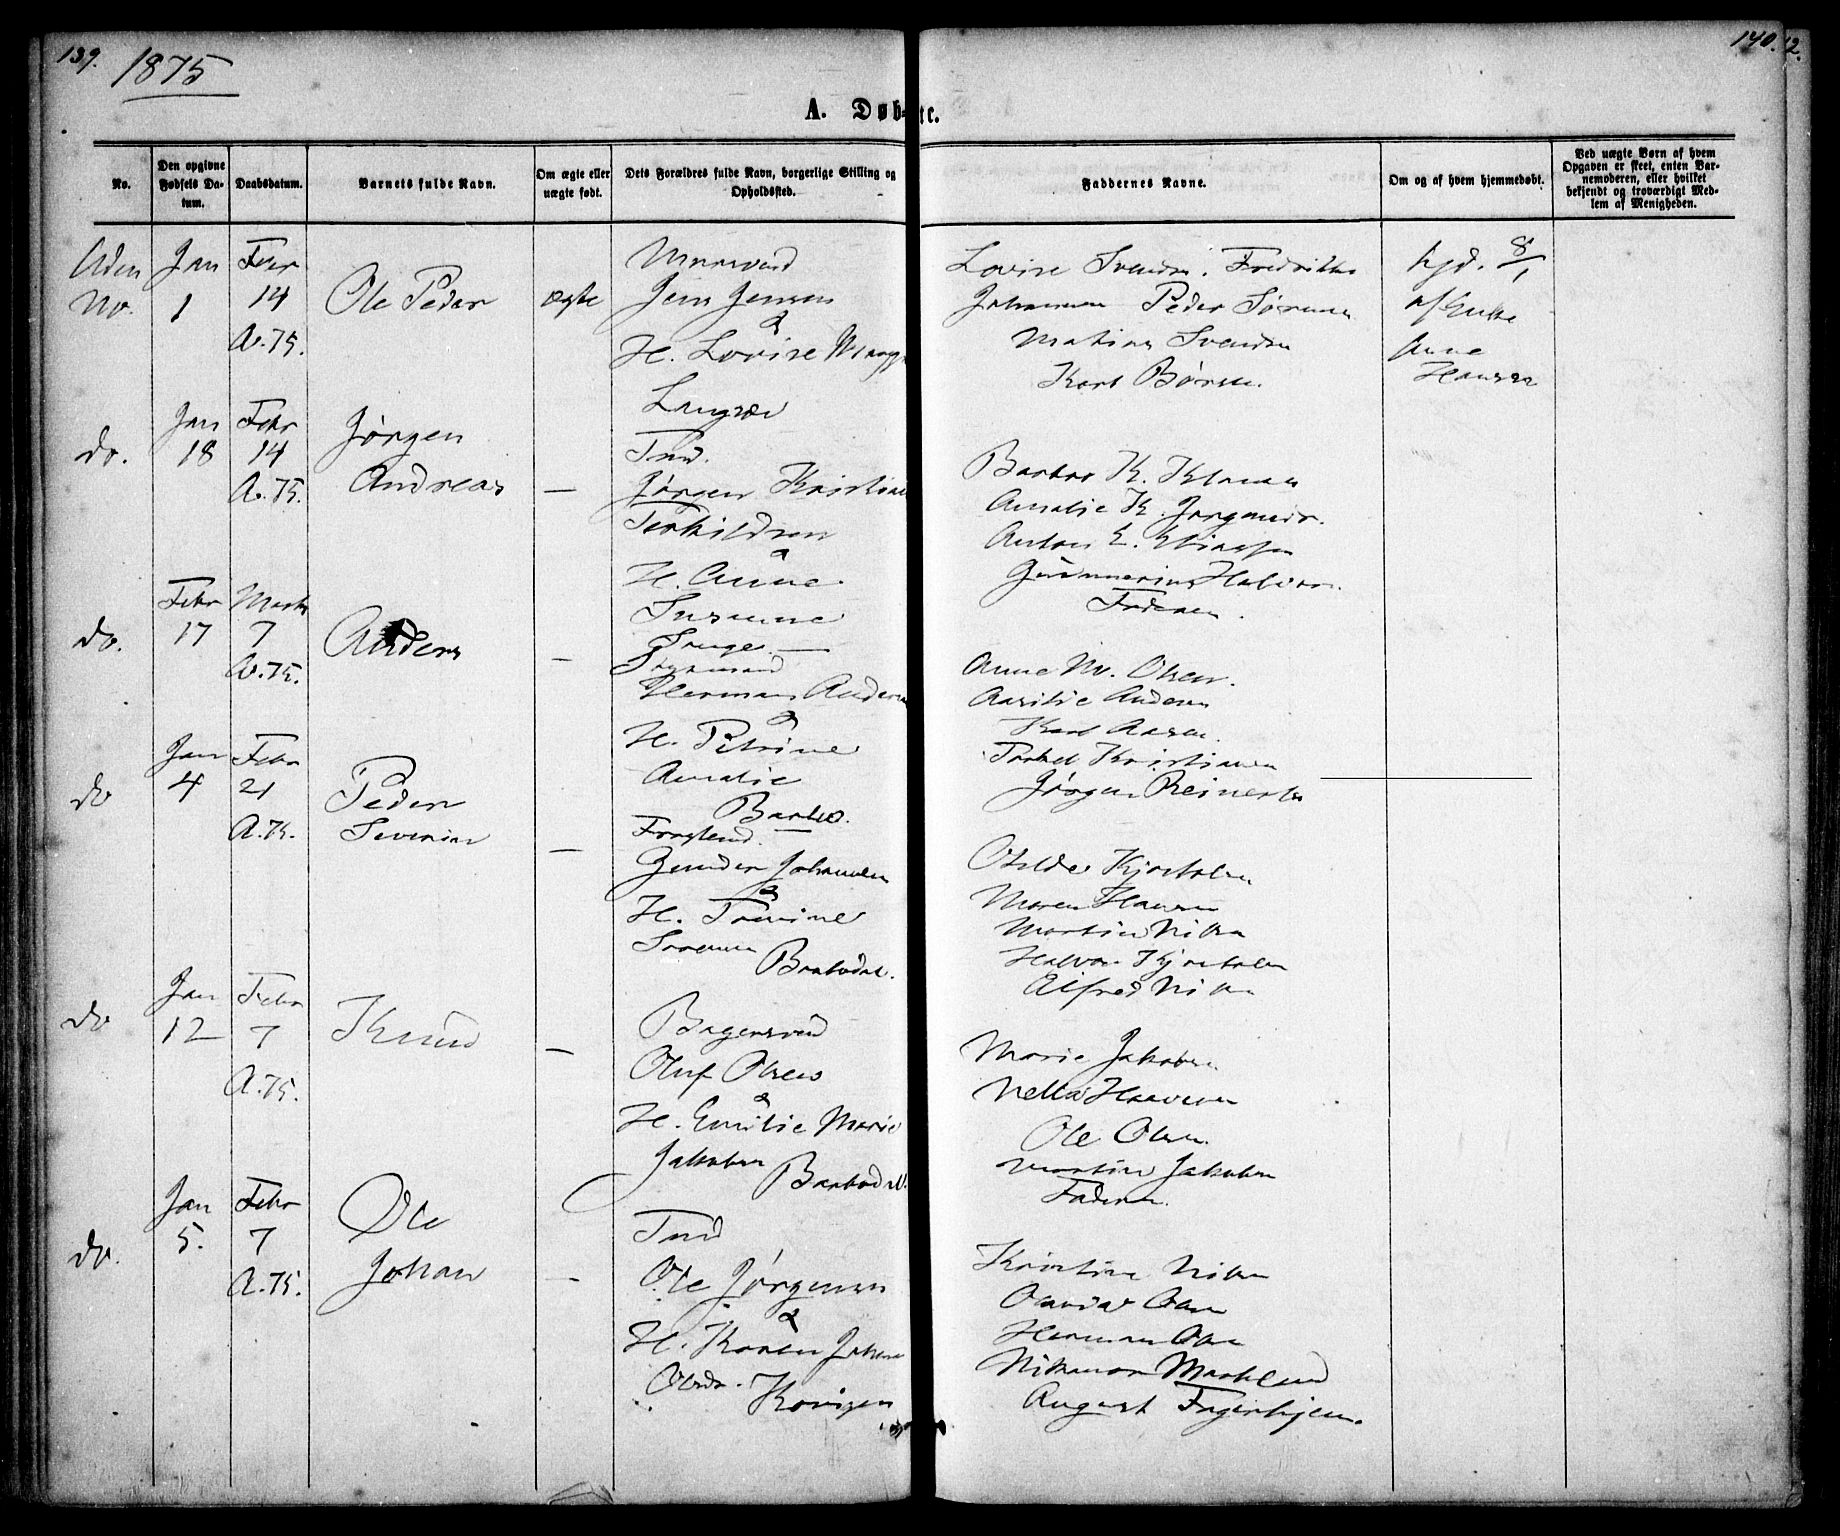 139.
1875
140.
12.
A. Døbte.
No.
Den opgivne Fødsels Datum.
Daabsdatum.
Barnets fulde Navn.
Om ægte eller uægte født.
Dets Forældres fulde Navn, borgerlige Stilling og Opholdssted.
Faddernes Navne.
Om og af hvem hjemmedøbt.
Ved uægte Børn af hvem Opgaven er skeet, enten Barnemoderen, eller hvilket bekjendt og troværdigt Medlem af Menigheden.
Uden No.
Jan 1
Febr 14
A. 75.
Ole Peder
ægte
Jens Jensen
&
H. Lovise
Lovise Svendsen. Fredrikke
Johannesen Peder Sørensen
Mathias Svendsen
Karl Børsen.
hjd. 8/1
af Enke
Anne
Hansen
do.
Jan 18
Febr 14
A. 75.
Jørgen
Andreas
—
Langsæ
Tmd.
Jørgen Kristian
Terkildsen
&
H. Anne
Susanne
Amalie K. Jørgensdr.
Anton E. Eliassen
Faderen.
do.
Febr 17
Marts 7
A. 75.
Anders
—
Herman Andersen
&
H. Petrine
Amalie
Barbo.
Anne M. Olsen.
Aasilie Andersen
Karl Aasen.
Terkel Kristiansen
Jørgen Reinertsen
do
Jan 4
Febr 21
A. 75.
Peder
Severin
—
Gunder Johannesen
&
H. Tomine
Sørensen
Barbodal.
Otilde Kjostolsen
Maren Hansen
Martin Nilsen
Halvor Kjostolsen
Alfred Nilsen
do
Jan 12
Febr 7
A. 75.
Knud
—
Bagersvend
Oluf Olsen
&
H. Emilie Marie
Jakobsen
Barbodal.
Marie Jakobsen
Nella Haavesen
Ole Olsen
Martin Jakobsen
Faderen.
do.
Jan 5.
Febr 7
A. 75.
Ole
Johan
—
Tmd
Ole Jørgensen
&
H. Karen Johanne
Olsdr.
Kovigen
Kristine Nilsen
Herman Olsen
Nikanor Marklund
August Fagerhjem.